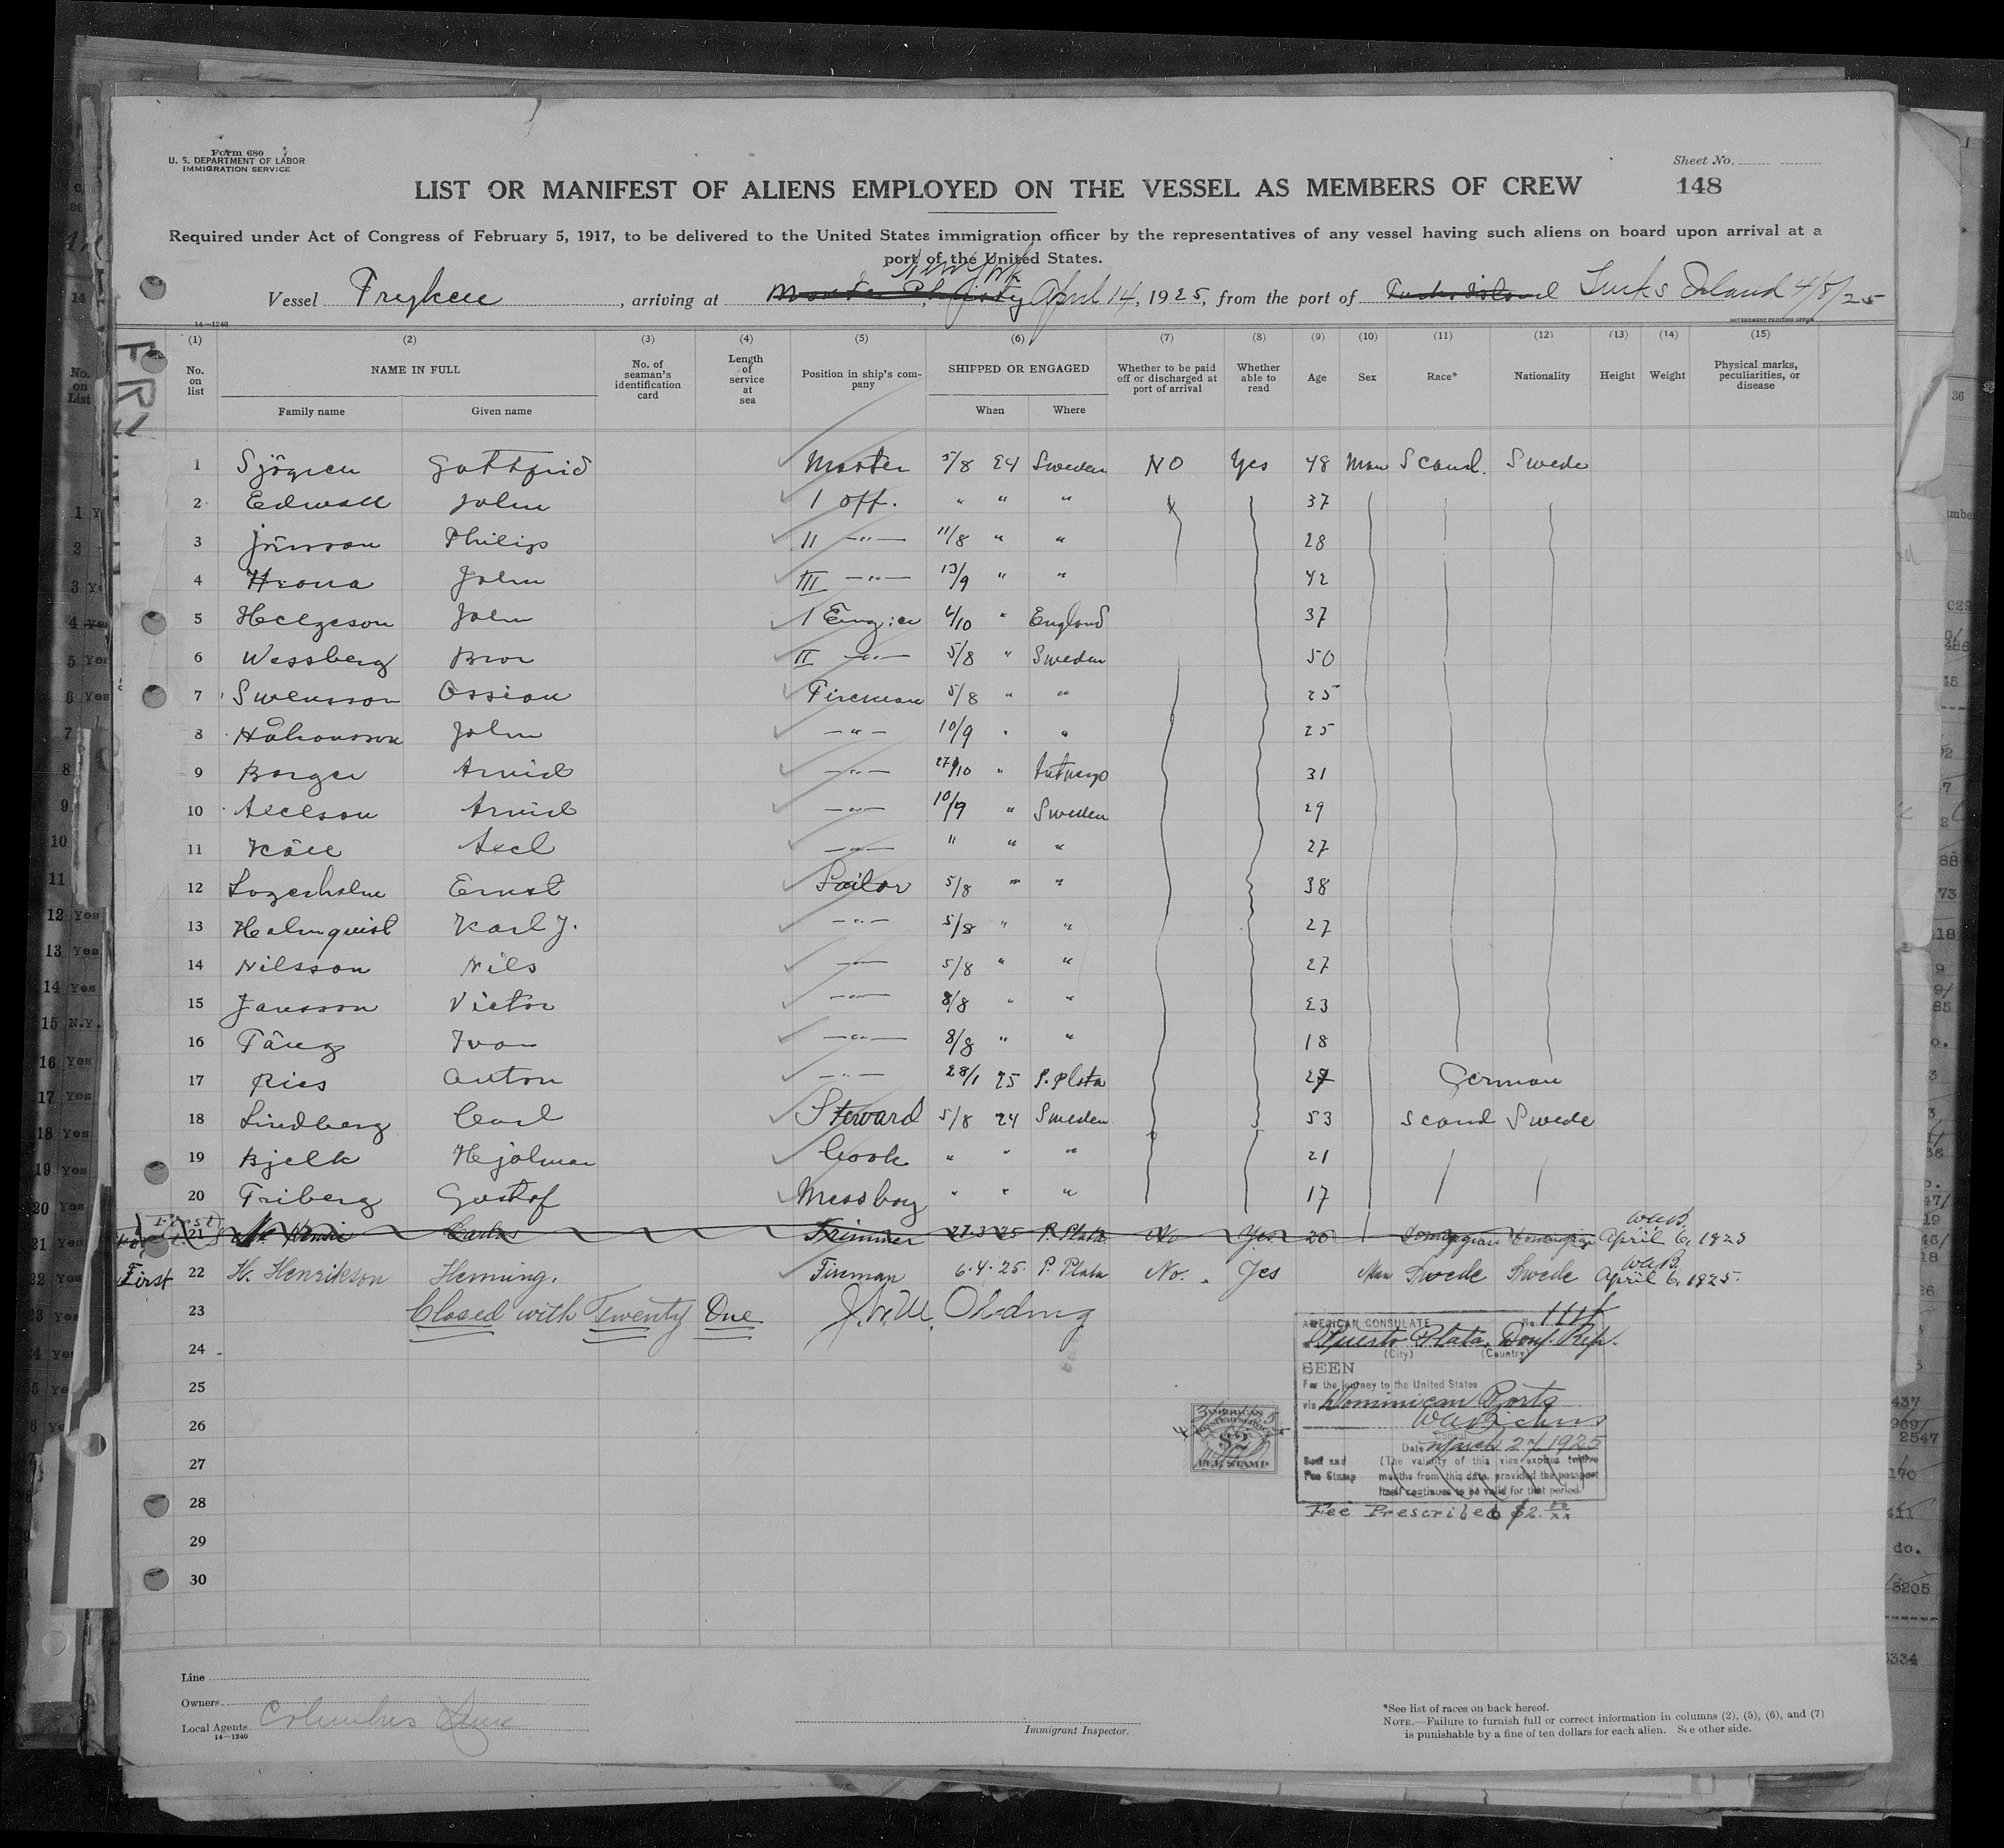 Form 680
U. S. DEPARTMENT OF LABOR
IMMIGRATION SERVICE
Sheet No.
148
LIST OR MANIFEST OF ALIENS EMPLOYED ON THE VESSEL AS MEMBERS OF CREW
Required under Act of Congress of February 5, 1917, to be delivered to the United States immigration officer by the representatives of any vessel having such aliens on board upon arrival at a
port of the United States.
New York
Vessel Fryken, arriving at April 14, 1925, from the port of Turks Island 4/8/25
14—1240
GOVERNMENT PRINTING OFFICE
(1) (2) (3) (4) (5) (6) (7) (8) (9) (10) (11) (12) (13) (14) (15)
No. on list NAME IN FULL No. of seaman's identification card Length of service at sea Position in ship's company SHIPPED OR ENGAGED Whether to be paid off or discharged at port of arrival Whether able to read Age Sex Race* Nationality Height Weight Physical marks, peculiarities, or disease
Family name Given name When Where
1 Sjögren Gottfrid Master 5/8 24 Sweden NO Yes 48 Man Scand. Swede
2 Edwall John 1 off. " " " 37
3 Jönsson Philip II —"— 11/8 " " 28
4 Hrona John III —"— 13/9 " " 42
5 Helgeson John 1 Engi:er 4/10 " England 37
6 Wessberg Bror II —"— 5/8 " Sweden 50
7 Swensson Ossian Fireman 5/8 " " 25
8 Håkansson John —"— 10/9 " " 25
9 Borger Arvid —"— 27/10 " Antwerp 31
10 Axelson Arvid —"— 10/9 " Sweden 29
11 Käll Axel —"— " " " 27
12 Lagerholm Ernst Sailor 5/8 " " 38
13 Holmquist Karl J. —"— 5/8 " " 27
14 Nilsson Nils —"— 5/8 " " 27
15 Jansson Victor —"— 8/8 " " 23
16 Täng Ivan —"— 8/8 " " 18
17 Ries Anton —"— 28/1 25 P. Plata 27 German
18 Lindberg Carl Steward 5/8 24 Sweden 53 Scand Swede
19 Bjelk Hjalmar Cook " " " 21
20 Friberg Gustaf Messboy " " " 17
21 Carlos Trimmer 27.3.25 P. Plata No Yes 20 April 6, 1925
First 22 H. Henrikson Henning. Fireman 6.4.25. P. Plata No. Yes Man Swede Swede April 6, 1925.
23 Closed with Twenty One
24
25
26
27
28
29
30
AMERICAN CONSULATE No. 111
Puerto Plata, Dom. Rep.
(City) (Country)
SEEN
For the journey to the United States
via Dominican Ports
Consul
Date March 27 1925
Seal and Fee Stamp
(The validity of this visa expires twelve
months from this date, provided the passport
itself continues to be valid for that period.
Fee Prescribed $2.00/xx
AMERICAN
$2
FEE STAMP
Line
Owners
Local Agents Columbus Line
14—1240
Immigrant Inspector.
*See list of races on back hereof.
NOTE.—Failure to furnish full or correct information in columns (2), (5), (6), and (7)
is punishable by a fine of ten dollars for each alien. See other side.